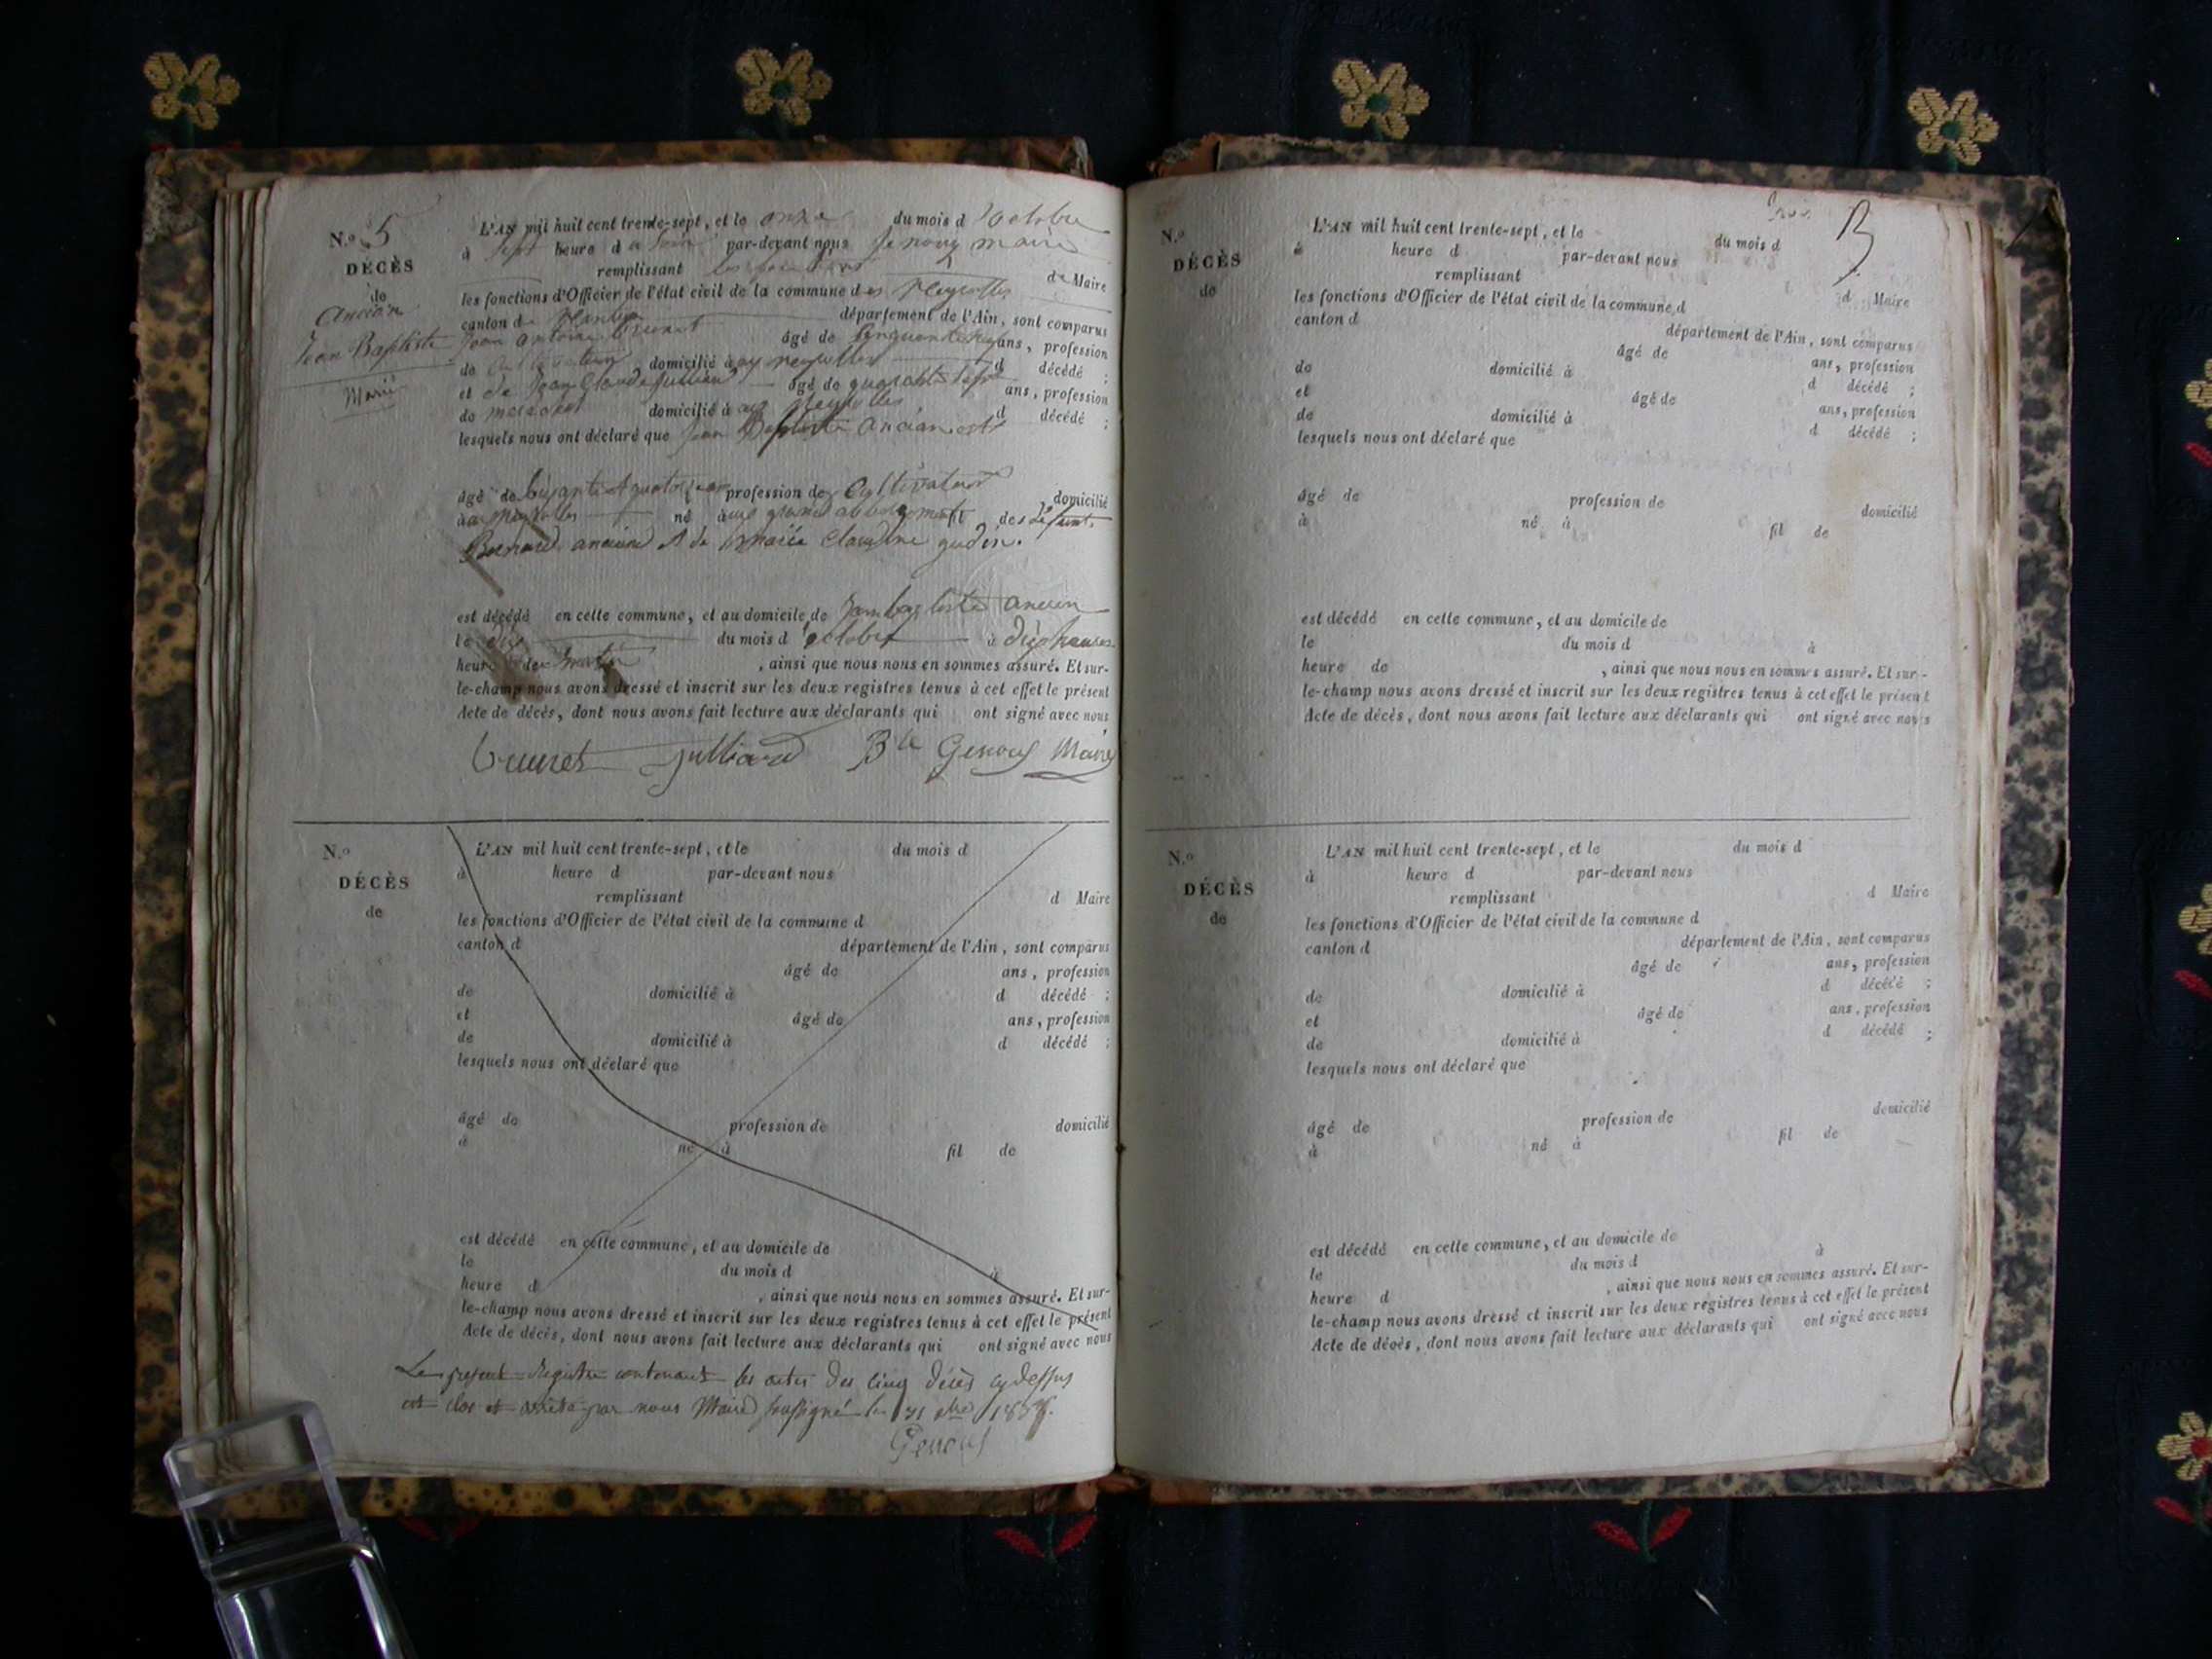 N.o 5
DÉCÈS
de
Ancian
Jean Baptiste
Marié
L'AN mil huit cent trente-sept, et le onze du mois d'octobre
à sept heure du soir par-devant nous Genoux maire
remplissant les fonctions d Maire
les fonctions d'Officier de l'état civil de la commune des Neyrolles
canton de Nantua département de l'Ain, sont comparus
Jean antoine Brunet âgé de ans, profession
de cultivateur domicilié à aux neyrolles d décédé ;
et de Jean Claude Julliard âgé de quarante sept ans, profession
de domicilié à aux Neyrolles d décédé ;
lesquels nous ont déclaré que Jean Baptiste Ancian est
âgé de profession de Cultivateur domicilié
à aux Neyrolles né à au grand abbergement des défunts
Bernard ancian et de marie Claudine gudin.
est décédé en cette commune, et au domicile de Jean baptiste ancian
le dix du mois d'octobre à dix heures
heure du matin , ainsi que nous nous en sommes assuré. Et sur-
le-champ nous avons dressé et inscrit sur les deux registres tenus à cet effet le présent
Acte de décès, dont nous avons fait lecture aux déclarants qui ont signé avec nous
Brunet Julliard Bte Genoux Maire
N.o
DÉCÈS
de
L'AN mil huit cent trente-sept, et le du mois d
à heure d par-devant nous
remplissant d Maire
les fonctions d'Officier de l'état civil de la commune d
canton d département de l'Ain, sont comparus
âgé de ans, profession
de domicilié à d décédé ;
et âgé de ans, profession
de domicilié à d décédé ;
lesquels nous ont déclaré que
âgé de profession de domicilié
à né à fil de
est décédé en cette commune, et au domicile de
le du mois d à
heure d , ainsi que nous nous en sommes assuré. Et sur-
le-champ nous avons dressé et inscrit sur les deux registres tenus à cet effet le présent
Acte de décès, dont nous avons fait lecture aux déclarants qui ont signé avec nous
Le present Registre contenant les actes des cinq décès cy dessus
est clos et arrêté par nous Maire soussigné le 31 xbre 1837.
Genoux
N.o
DÉCÈS
de
L'AN mil huit cent trente-sept, et le du mois d
à heure d par-devant nous
remplissant d Maire
les fonctions d'Officier de l'état civil de la commune d
canton d département de l'Ain, sont comparus
âgé de ans, profession
de domicilié à d décédé ;
et âgé de ans, profession
de domicilié à d décédé ;
lesquels nous ont déclaré que
âgé de profession de domicilié
à né à fil de
est décédé en cette commune, et au domicile de
le du mois d à
heure de , ainsi que nous nous en sommes assuré. Et sur-
le-champ nous avons dressé et inscrit sur les deux registres tenus à cet effet le présent
Acte de décès, dont nous avons fait lecture aux déclarants qui ont signé avec nous
N.o
DÉCÈS
de
L'AN mil huit cent trente-sept, et le du mois d
à heure d par-devant nous
remplissant d Maire
les fonctions d'Officier de l'état civil de la commune d
canton d département de l'Ain, sont comparus
âgé de ans, profession
de domicilié à d décédé ;
et âgé de ans, profession
de domicilié à d décédé ;
lesquels nous ont déclaré que
âgé de profession de domicilié
à né à fil de
est décédé en cette commune, et au domicile de
le du mois d à
heure d , ainsi que nous nous en sommes assuré. Et sur-
le-champ nous avons dressé et inscrit sur les deux registres tenus à cet effet le présent
Acte de décès, dont nous avons fait lecture aux déclarants qui ont signé avec nous